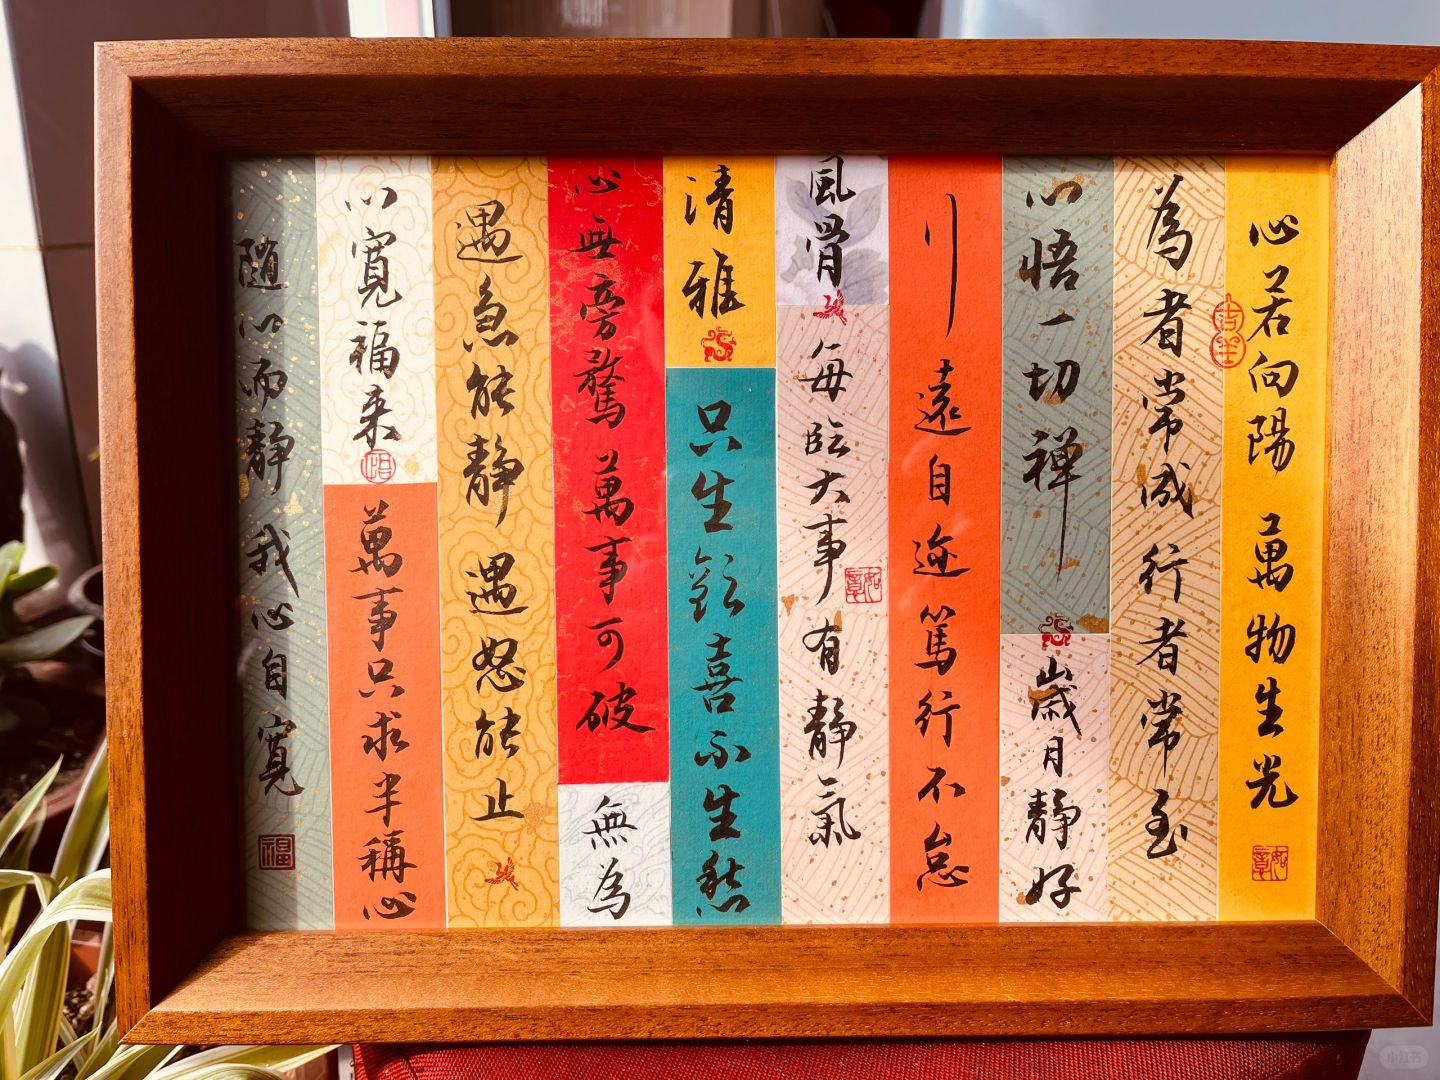 心若向陽 萬物生光
如意
為者常成 行者常至
心悟一切禅
歲月靜好
行遠自迩 篤行不怠
風骨
每臨大事有靜氣
如意
清雅
只生歡喜不生愁
心無旁騖 萬事可破
無為
遇急能静 遇怒能止
心寬福来
萬事只求半稱心
隨心而静 我心自寬
福
小红书